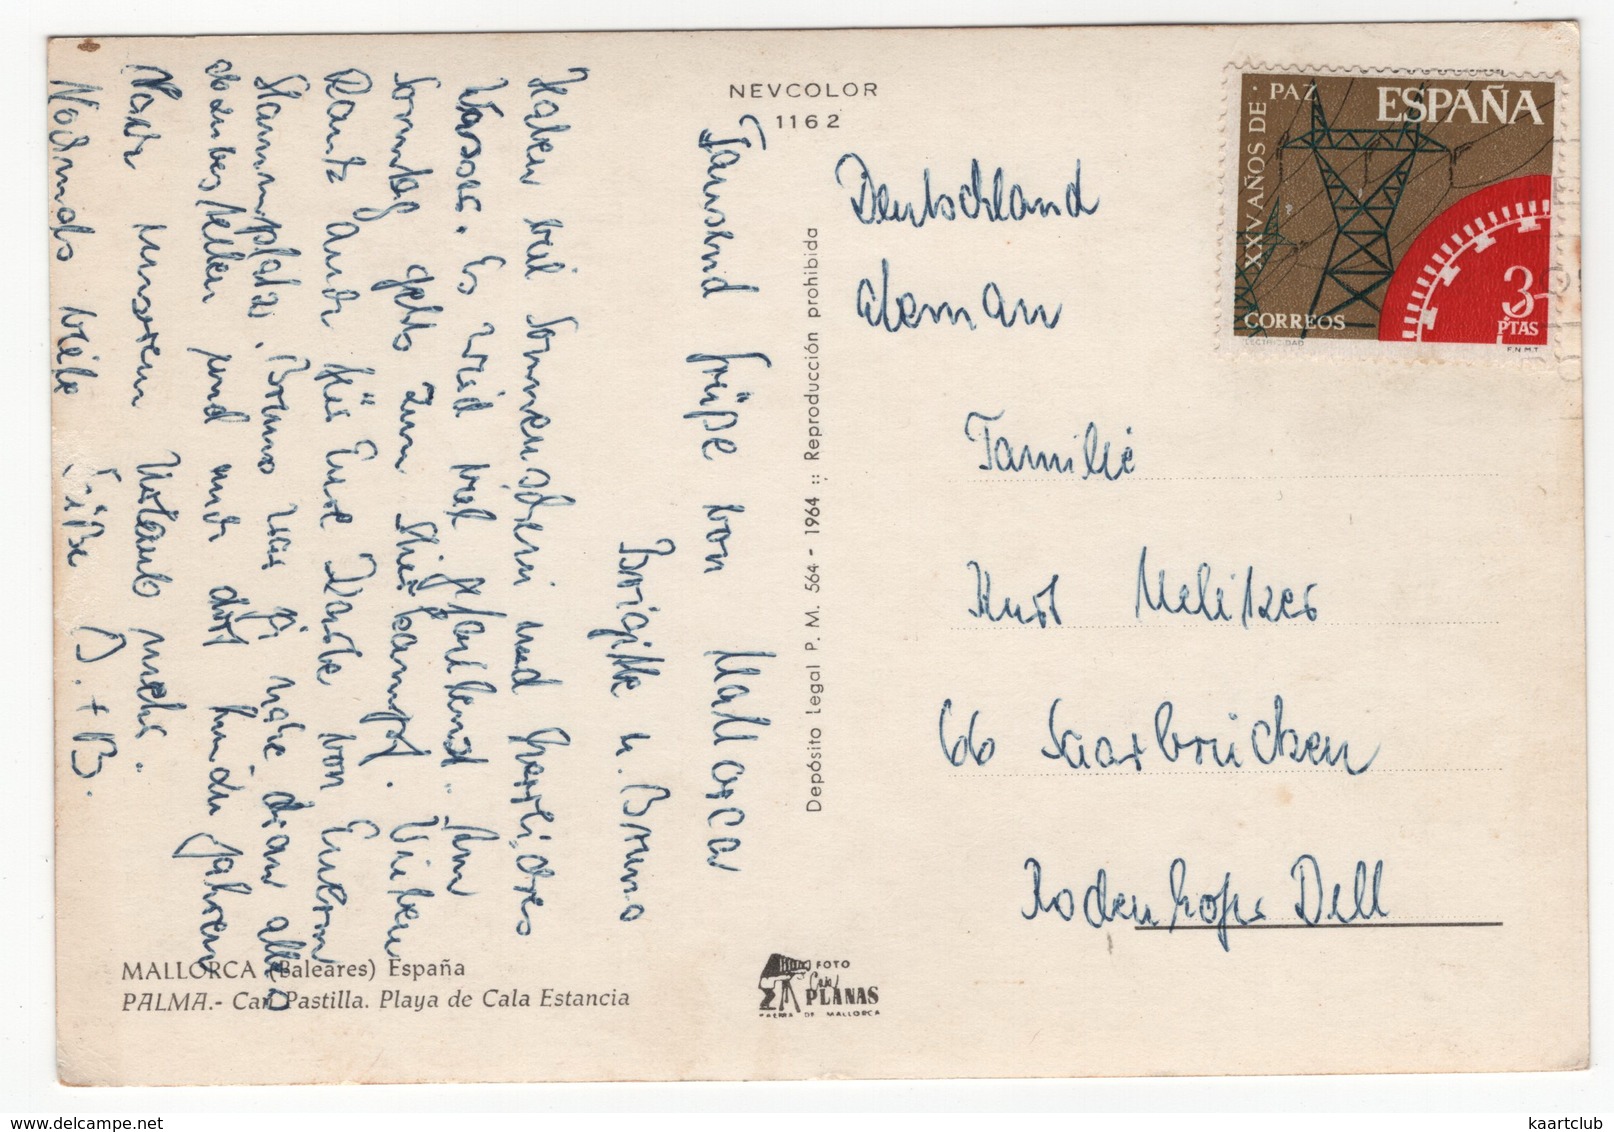 NEVCOLOR
1162
XXV AÑOS DE PAZ
ESPAÑA
CORREOS
3 PTAS
F.N.M.T.
ELECTRICIDAD
Deutschland
aleman
Familie
Kurt Melitzer
66 Saarbrücken
Rodenhofer Dell
Tausend Grüße von Mallorca
Brigitte u. Bruno
Haben viel Sonnenschein und herrliches
Wasser. Es wird viel gefaulenzt. Am
Sonntag gehts zum Stierkampf. Vielen
Dank auch für Eure Karte von Eurem
Stammplatz. Bruno war nahe dran alles
abzubestellen und auch dort hinzufahren
Nach unserem Urlaub mehr.
Nochmals viele Grüße B. + B.
Depósito Legal P. M. 564 - 1964 :: Reproducción prohibida
MALLORCA (Baleares) España
PALMA.- Can Pastilla. Playa de Cala Estancia
FOTO
Casa
PLANAS
PALMA DE MALLORCA
https://www.delcampe.net
kaartclub